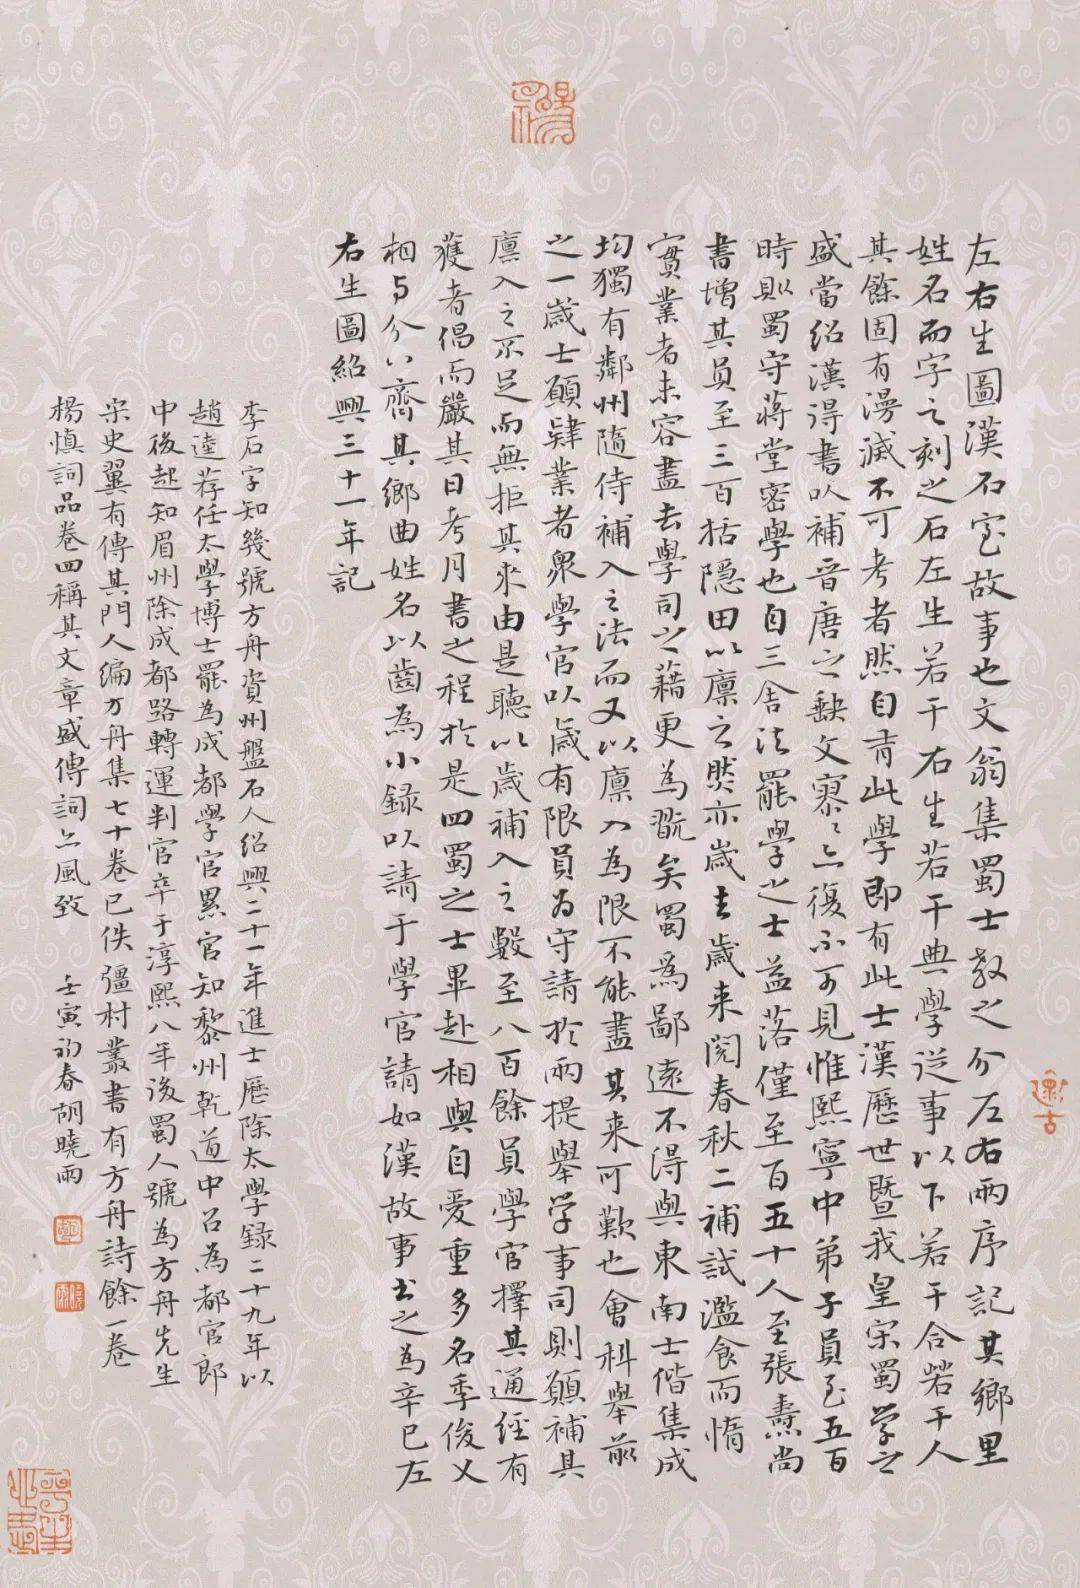 左右生圖漢石室故事也文翁集蜀士教之分左右兩序記其鄉里
姓名而字之刻之石左生若干右生若干典學從事以下若干合若干人
其餘固有漫滅不可考者然自有此學即有此士漢歷世暨我皇宋蜀学之
盛當紹漢得書以補晉唐之缺文寥〻亦復不可見惟熙寧中弟子員至五百
時則蜀守蔣堂密學也自三舍法罷學之士益落僅至百五十人至張燾尚
書增其員至三百括隱田以廩之然亦歲去歲来閱春秋二補試濫食而惰
實業者未容盡去學司之藉更為翫矣蜀為鄙遠不得與東南士偕集成
均獨有鄰州隨侍補入之法而又以廩入為限不能盡其来可歎也會科舉前
之一歲士願肄業者衆學官以歲有限員為守請於兩提舉学事司則願補其
廩入之不足而無拒其来由是聽以歲補入之數至八百餘員學官擇其通經有
獲者倡而嚴其日考月書之程於是四蜀之士畢赴相與自愛重多名季俊乂
相与分八齋其鄉曲姓名以齒為小錄以請于學官請如漢故事書之為辛巳左
右生圖紹興三十一年記
李石字知幾號方舟資州盤石人紹興二十一年進士歷除太學録二十九年以
趙逵荐任太學博士罷為成都學官累官知黎州乾道中召為都官郎
中後起知眉州除成都路轉運判官卒于淳熙八年後蜀人號為方舟先生
宋史翼有傳其門人編方舟集七十卷已佚彊村叢書有方舟詩餘一卷
楊慎詞品卷四稱其文章盛傳詞亦風致 壬寅初春胡曉雨